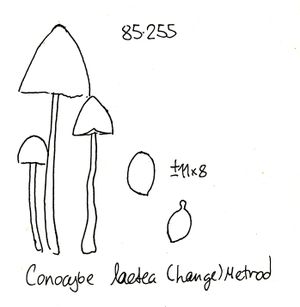 85.255
±11x8
Conocybe lactea (Lange) Metrod